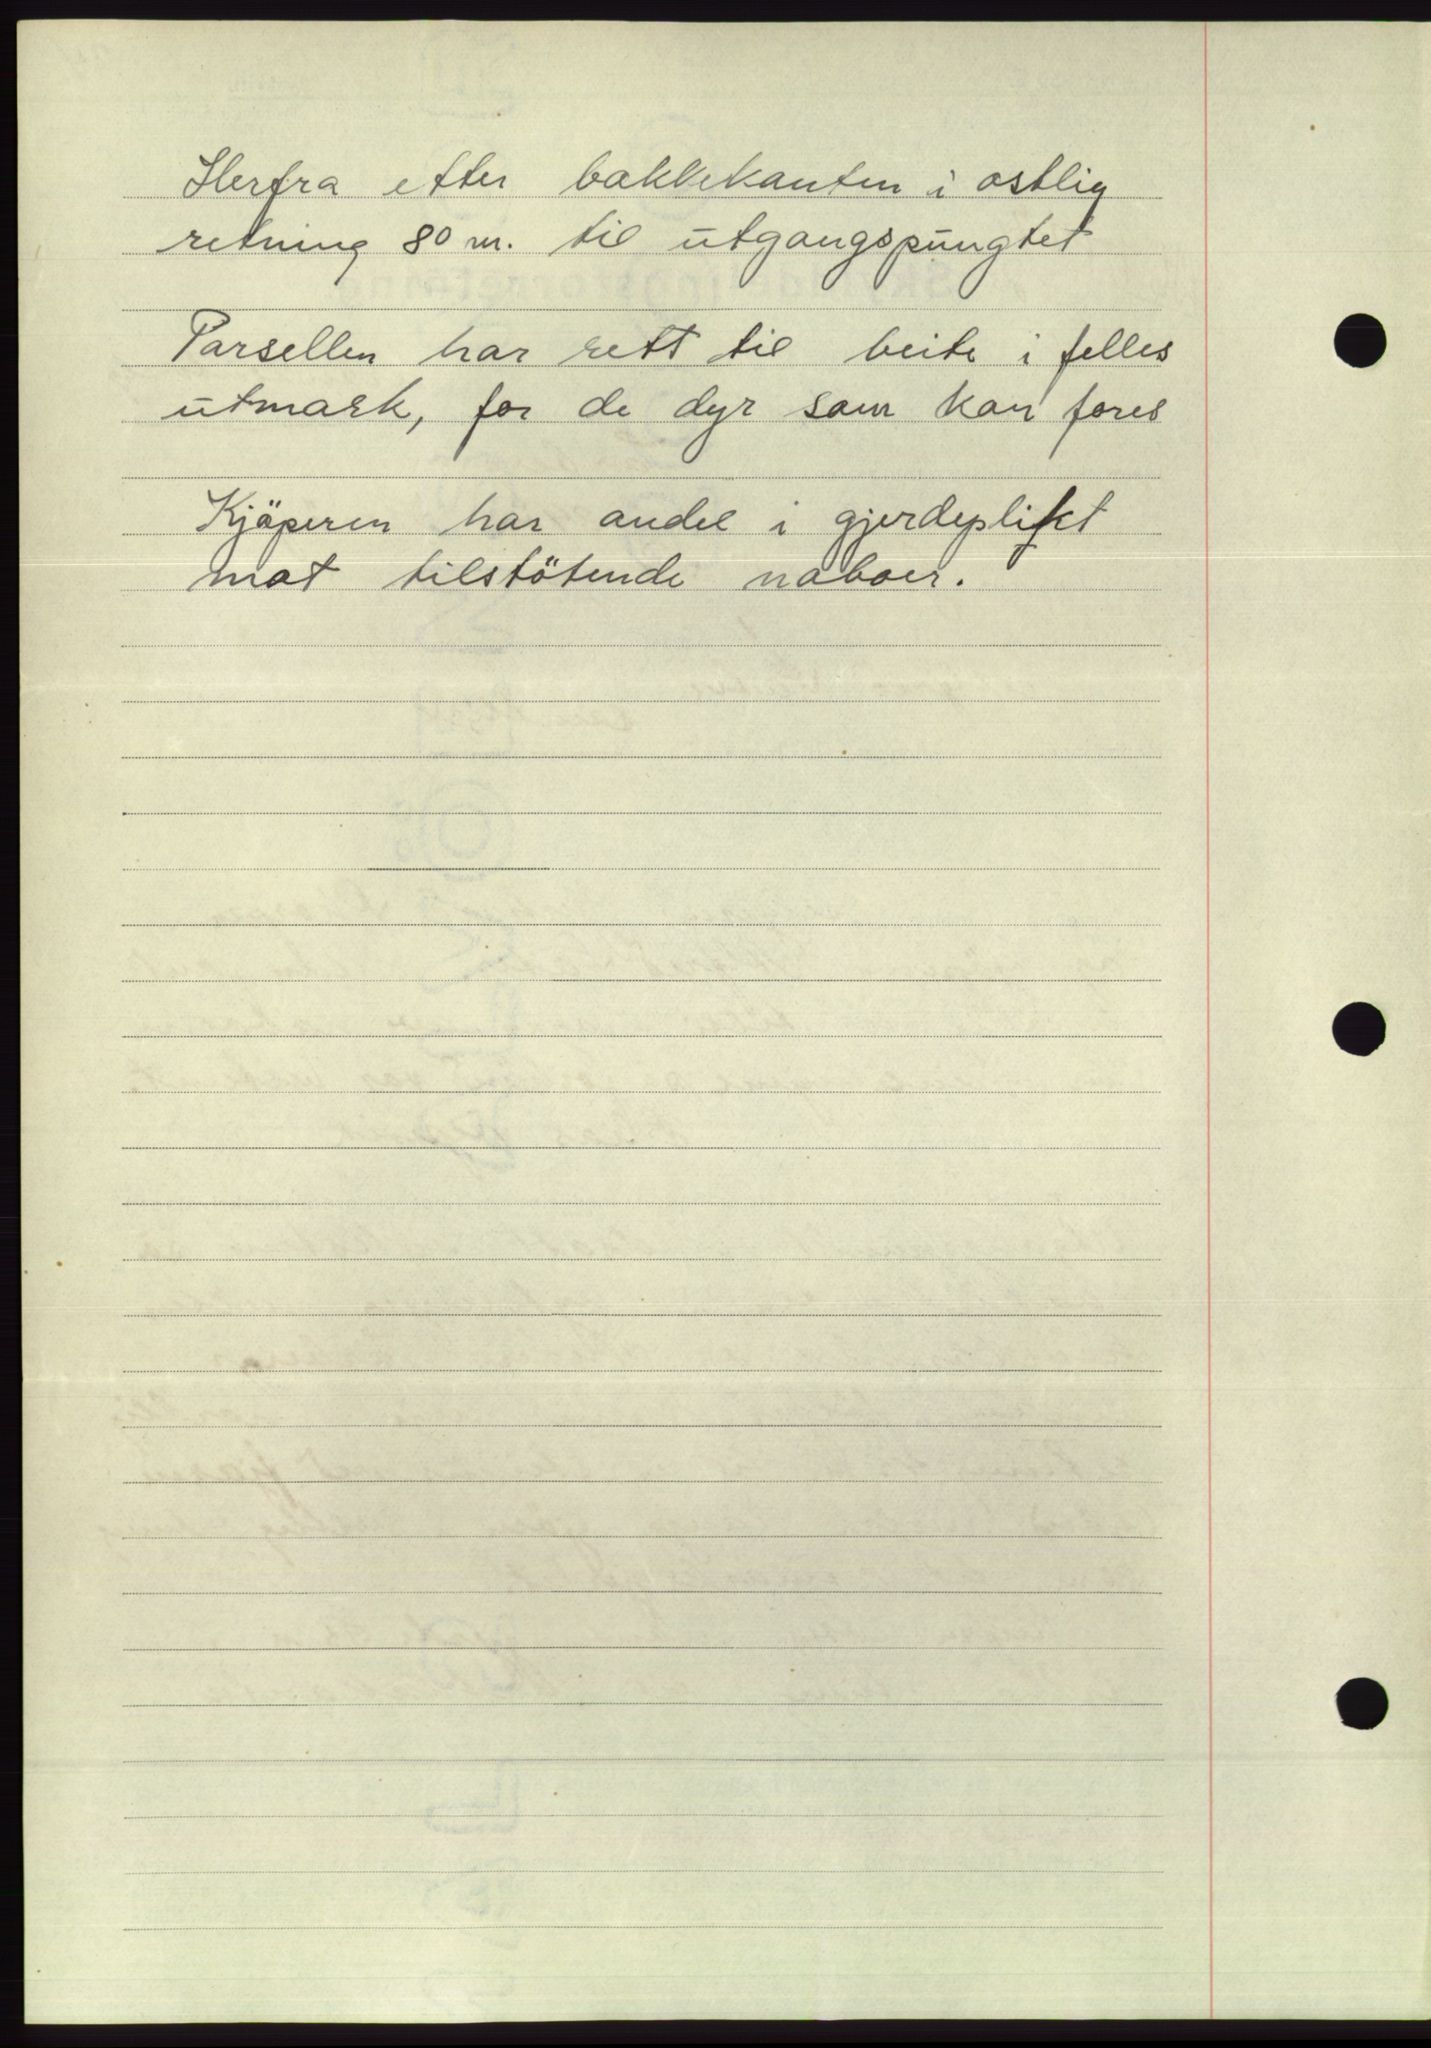 Herfra etter bakkekanten i ostlig
retning 80 m. til utgangspungtet
Parsellen har rett til beite i felles
utmark, for de dyr som kan fores
Kjöperen har andel i gjerdeplikt
mot tilstötende naboer.